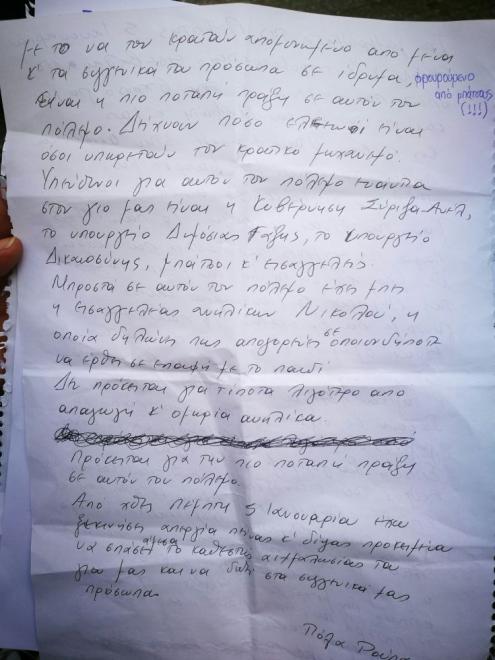 με το να τον κρατούν απομονωμένο από μένα
κ' τα συγγενικά του πρόσωπα σε ίδρυμα, φρουρούμενο από μπάτσους (!!!)
είναι η πιο ποταπή πράξη σε αυτόν τον
πόλεμο. Δείχνουν πόσο ελεεινοί είναι
όσοι υπηρετούν τον κρατικό μηχανισμό.
Υπεύθυνοι για αυτόν τον πόλεμο ενάντια
στον γιο μας είναι η Κυβέρνηση Σύριζα-Ανέλ,
το υπουργείο Δημόσιας Τάξης, το υπουργείο
Δικαιοσύνης, μπάτσοι κ' εισαγγελείς.
Μπροστά σε αυτόν τον πόλεμο έχει μπει
η εισαγγελέας ανηλίκων Νικολού, η
οποία δηλώνει πως απαγορεύει σε οποιονδήποτε
να έρθει σε επαφή με το παιδί
Δεν πρόκειται για τίποτα λιγότερο από
απαγωγή κ' ομηρία ανηλίκου.
Πρόκειται για την πιο ποταπή πράξη
σε αυτόν τον πόλεμο.
Από χθες Πέμπτη 5 Ιανουαρίου έχω
ξεκινήσει απεργία πείνας κ' δίψας προκειμένου
να σπάσει άμεσα το καθεστώς αιχμαλωσίας του
γιου μας και να δοθεί στα συγγενικά μας
πρόσωπα.
Πόλα Ρούπα